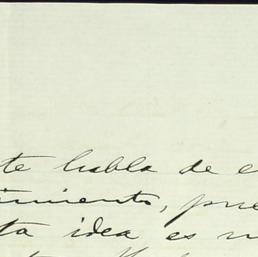 te habla de e
imiento, pue
ta idea es m